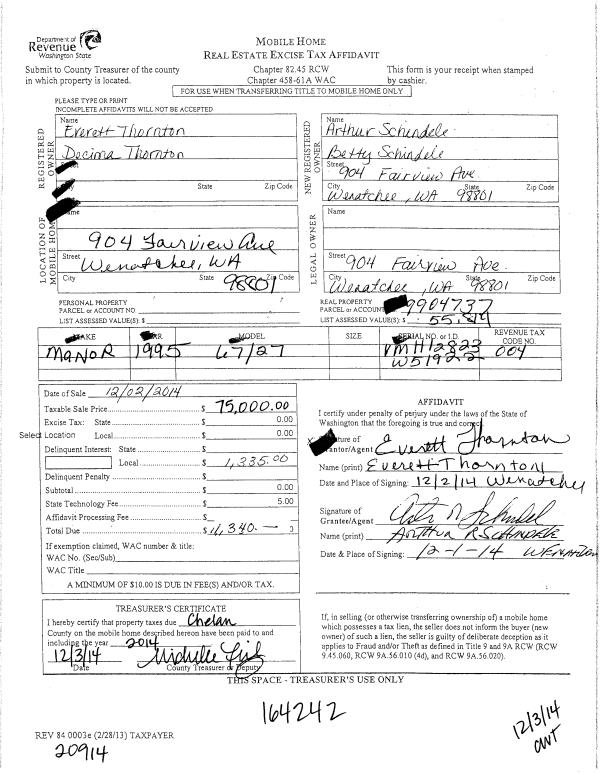 Department of
Revenue
Washington State
MOBILE HOME
REAL ESTATE EXCISE TAX AFFIDAVIT
Submit to County Treasurer of the county
in which property is located.
Chapter 82.45 RCW
Chapter 458-61A WAC
This form is your receipt when stamped
by cashier.
FOR USE WHEN TRANSFERRING TITLE TO MOBILE HOME ONLY
PLEASE TYPE OR PRINT
INCOMPLETE AFFIDAVITS WILL NOT BE ACCEPTED
REGISTERED OWNER
Name
Everett Thornton
Decima Thornton
State Zip Code
NEW REGISTERED OWNER
Name
Arthur Schindele
Betty Schindele
Street 904 Fairview Ave
City State Zip Code
Wenatchee, WA 98801
LOCATION OF MOBILE HOME
Name
904 Fairview Ave
Street
Wenatchee, WA
City State Zip Code
98801
LEGAL OWNER
Name
Street 904 Fairview Ave.
City State Zip Code
Wenatchee, WA 98801
PERSONAL PROPERTY
PARCEL or ACCOUNT NO.
LIST ASSESSED VALUE(S): $
REAL PROPERTY
PARCEL or ACCOUNT NO. 9904737
LIST ASSESSED VALUE(S): $
MAKE YEAR MODEL SIZE SERIAL NO. or I.D. REVENUE TAX CODE NO.
MANOR 1995 67/27 004
Date of Sale 12/02/2014
Taxable Sale Price $ 75,000.00
Excise Tax: State $ 0.00
Select Location Local $ 0.00
Delinquent Interest: State $
Local $ 1,335.00
Delinquent Penalty $
Subtotal $ 0.00
State Technology Fee $ 5.00
Affidavit Processing Fee $
Total Due $ 1,340.—
If exemption claimed, WAC number & title:
WAC No. (Sec/Sub)
WAC Title
A MINIMUM OF $10.00 IS DUE IN FEE(S) AND/OR TAX.
AFFIDAVIT
I certify under penalty of perjury under the laws of the State of
Washington that the foregoing is true and correct.
Signature of
Grantor/Agent Everett Thornton
Name (print) Everett Thornton
Date and Place of Signing: 12/2/14 Wenatchee
Signature of
Grantee/Agent
Name (print) Arthur R Schindele
Date & Place of Signing: 12-1-14
TREASURER'S CERTIFICATE
I hereby certify that property taxes due Chelan
County on the mobile home described hereon have been paid to and
including the year 2014
12/3/14
Date County Treasurer or Deputy
If, in selling (or otherwise transferring ownership of) a mobile home
which possesses a tax lien, the seller does not inform the buyer (new
owner) of such a lien, the seller is guilty of deliberate deception as it
applies to Fraud and/or Theft as defined in Title 9 and 9A RCW (RCW
9.45.060, RCW 9A.56.010 (4d), and RCW 9A.56.020).
THIS SPACE - TREASURER'S USE ONLY
164242
12/3/14
REV 84 0003e (2/28/13) TAXPAYER
20914